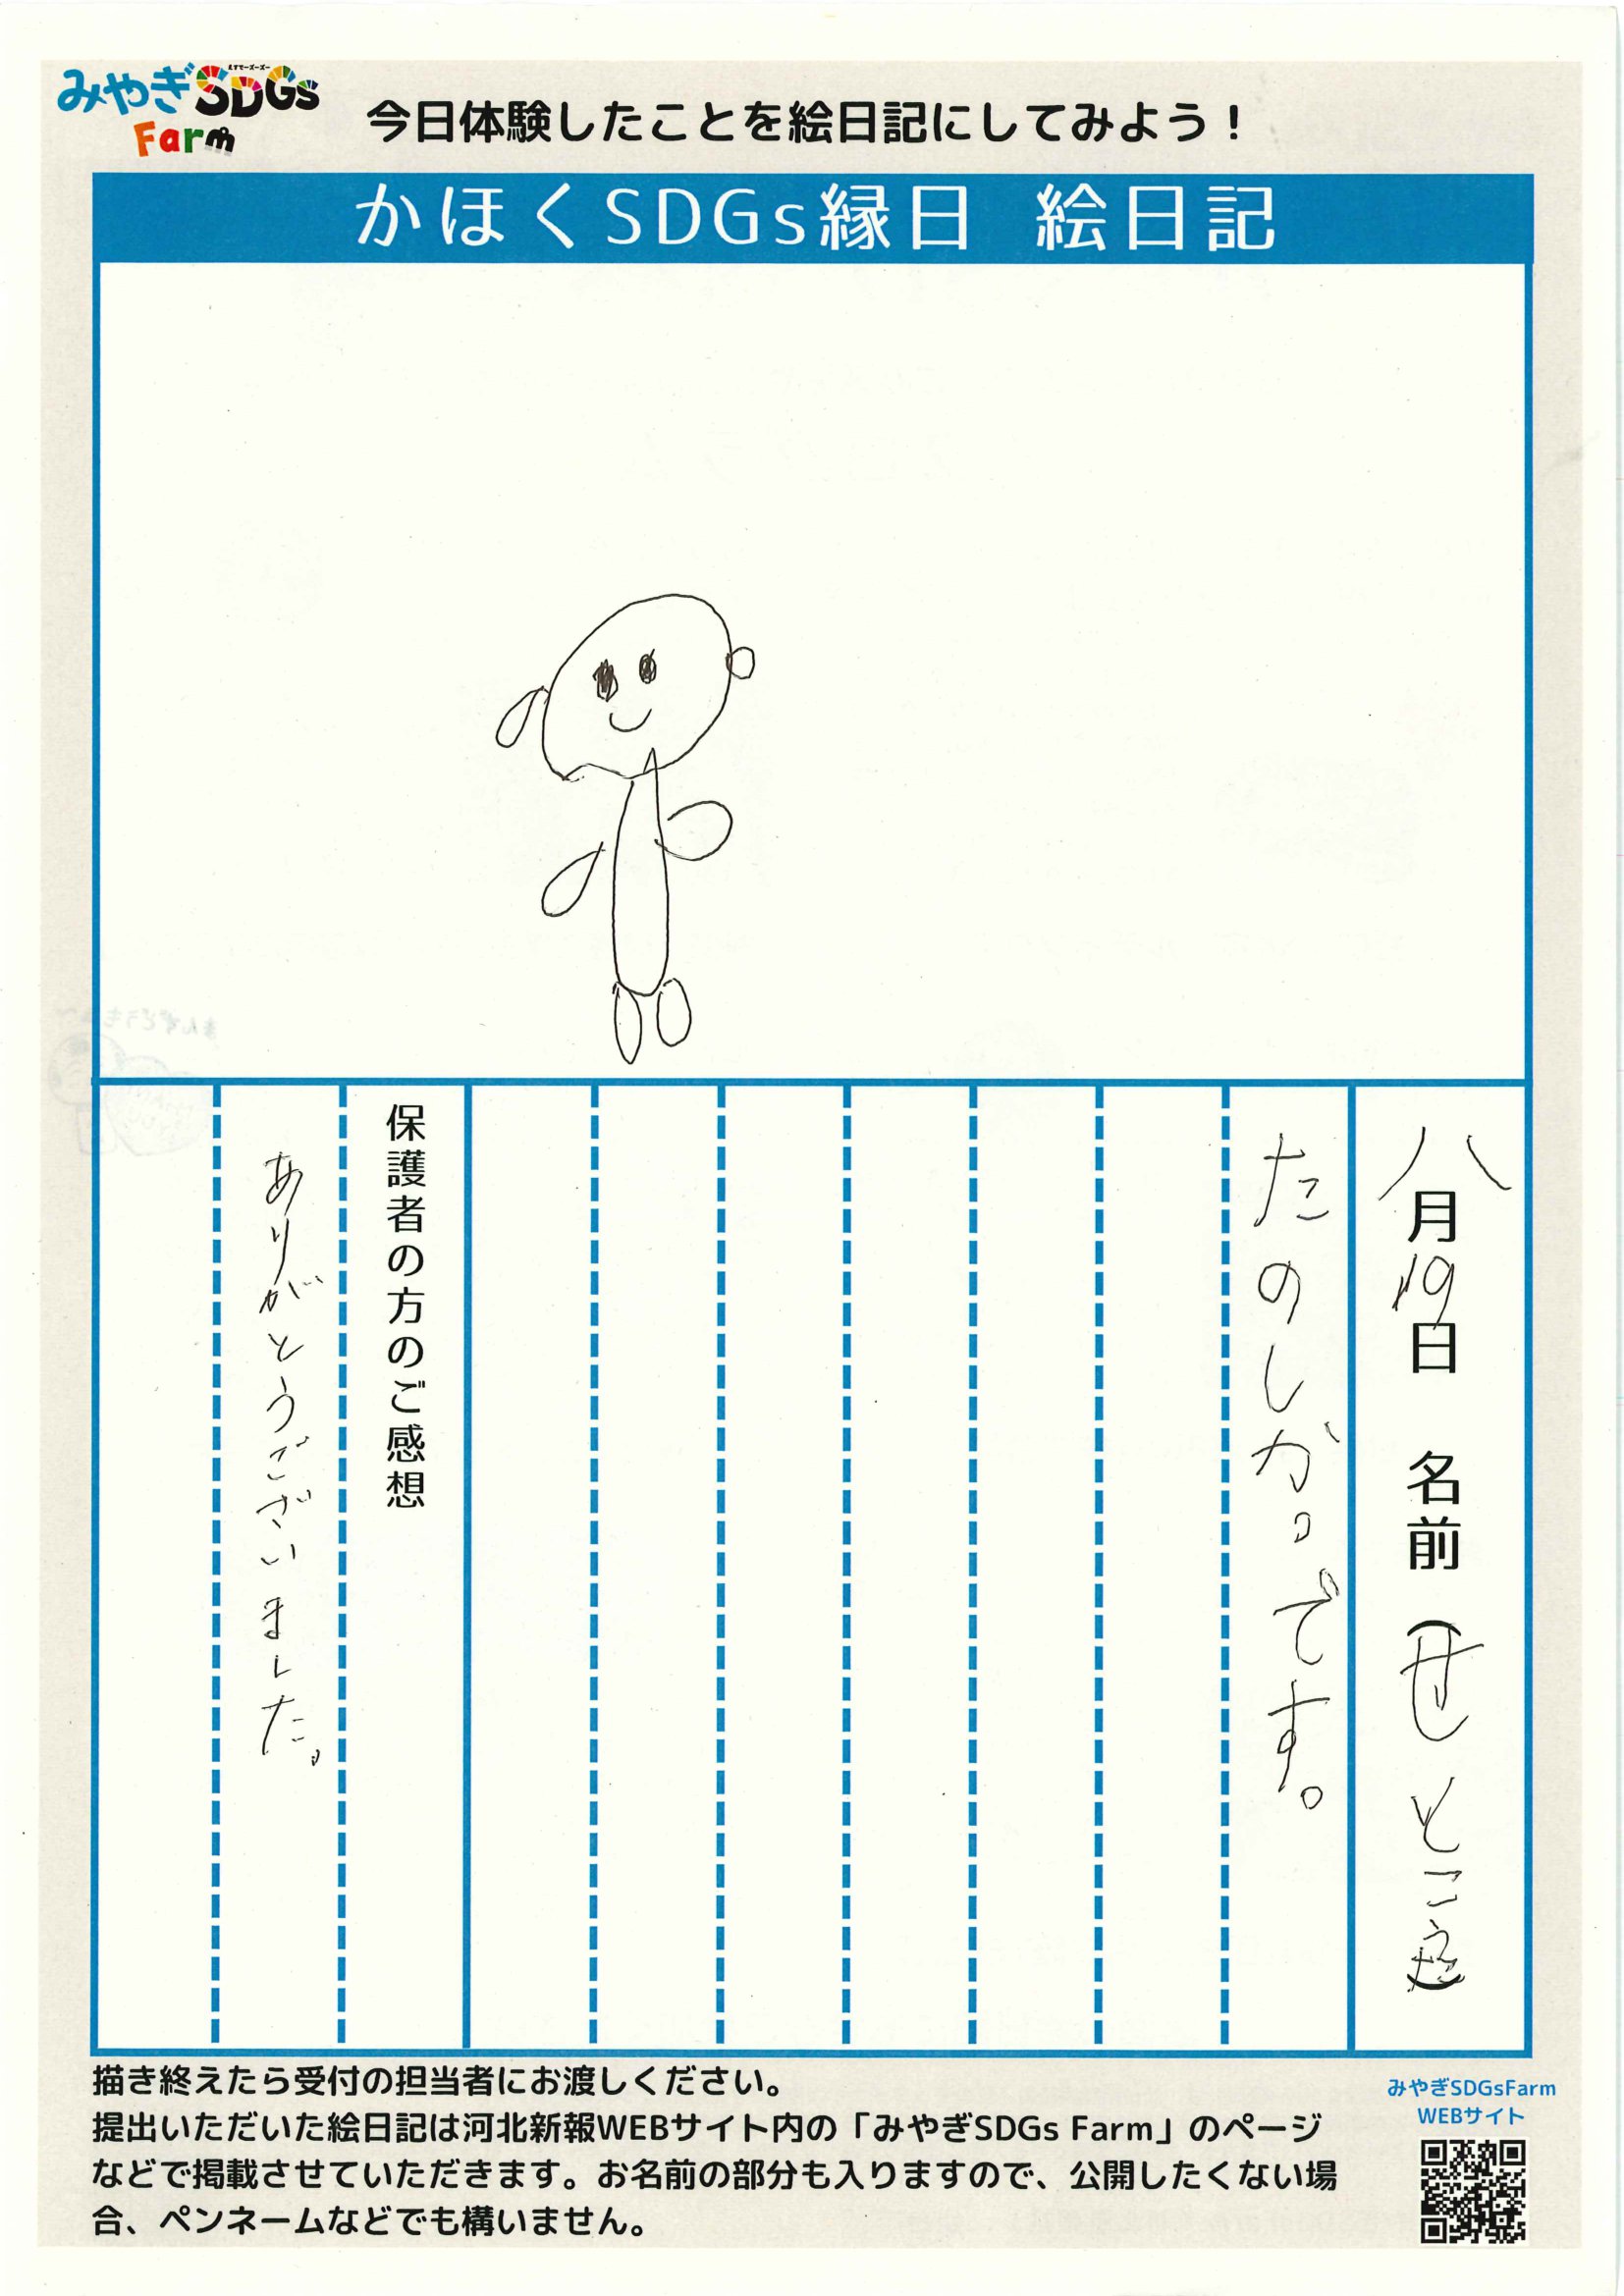 みやぎSDGs
えすでぃーじーず
Farm
今日体験したことを絵日記にしてみよう！
かほくSDGs縁日 絵日記
八月19日 名前（せ とこ
たのしか。です。
保護者の方のご感想
ありがとうございました。
描き終えたら受付の担当者にお渡しください。
提出いただいた絵日記は河北新報WEBサイト内の「みやぎSDGs Farm」のページ
などで掲載させていただきます。お名前の部分も入りますので、公開したくない場
合、ペンネームなどでも構いません。
みやぎSDGsFarm
WEBサイト